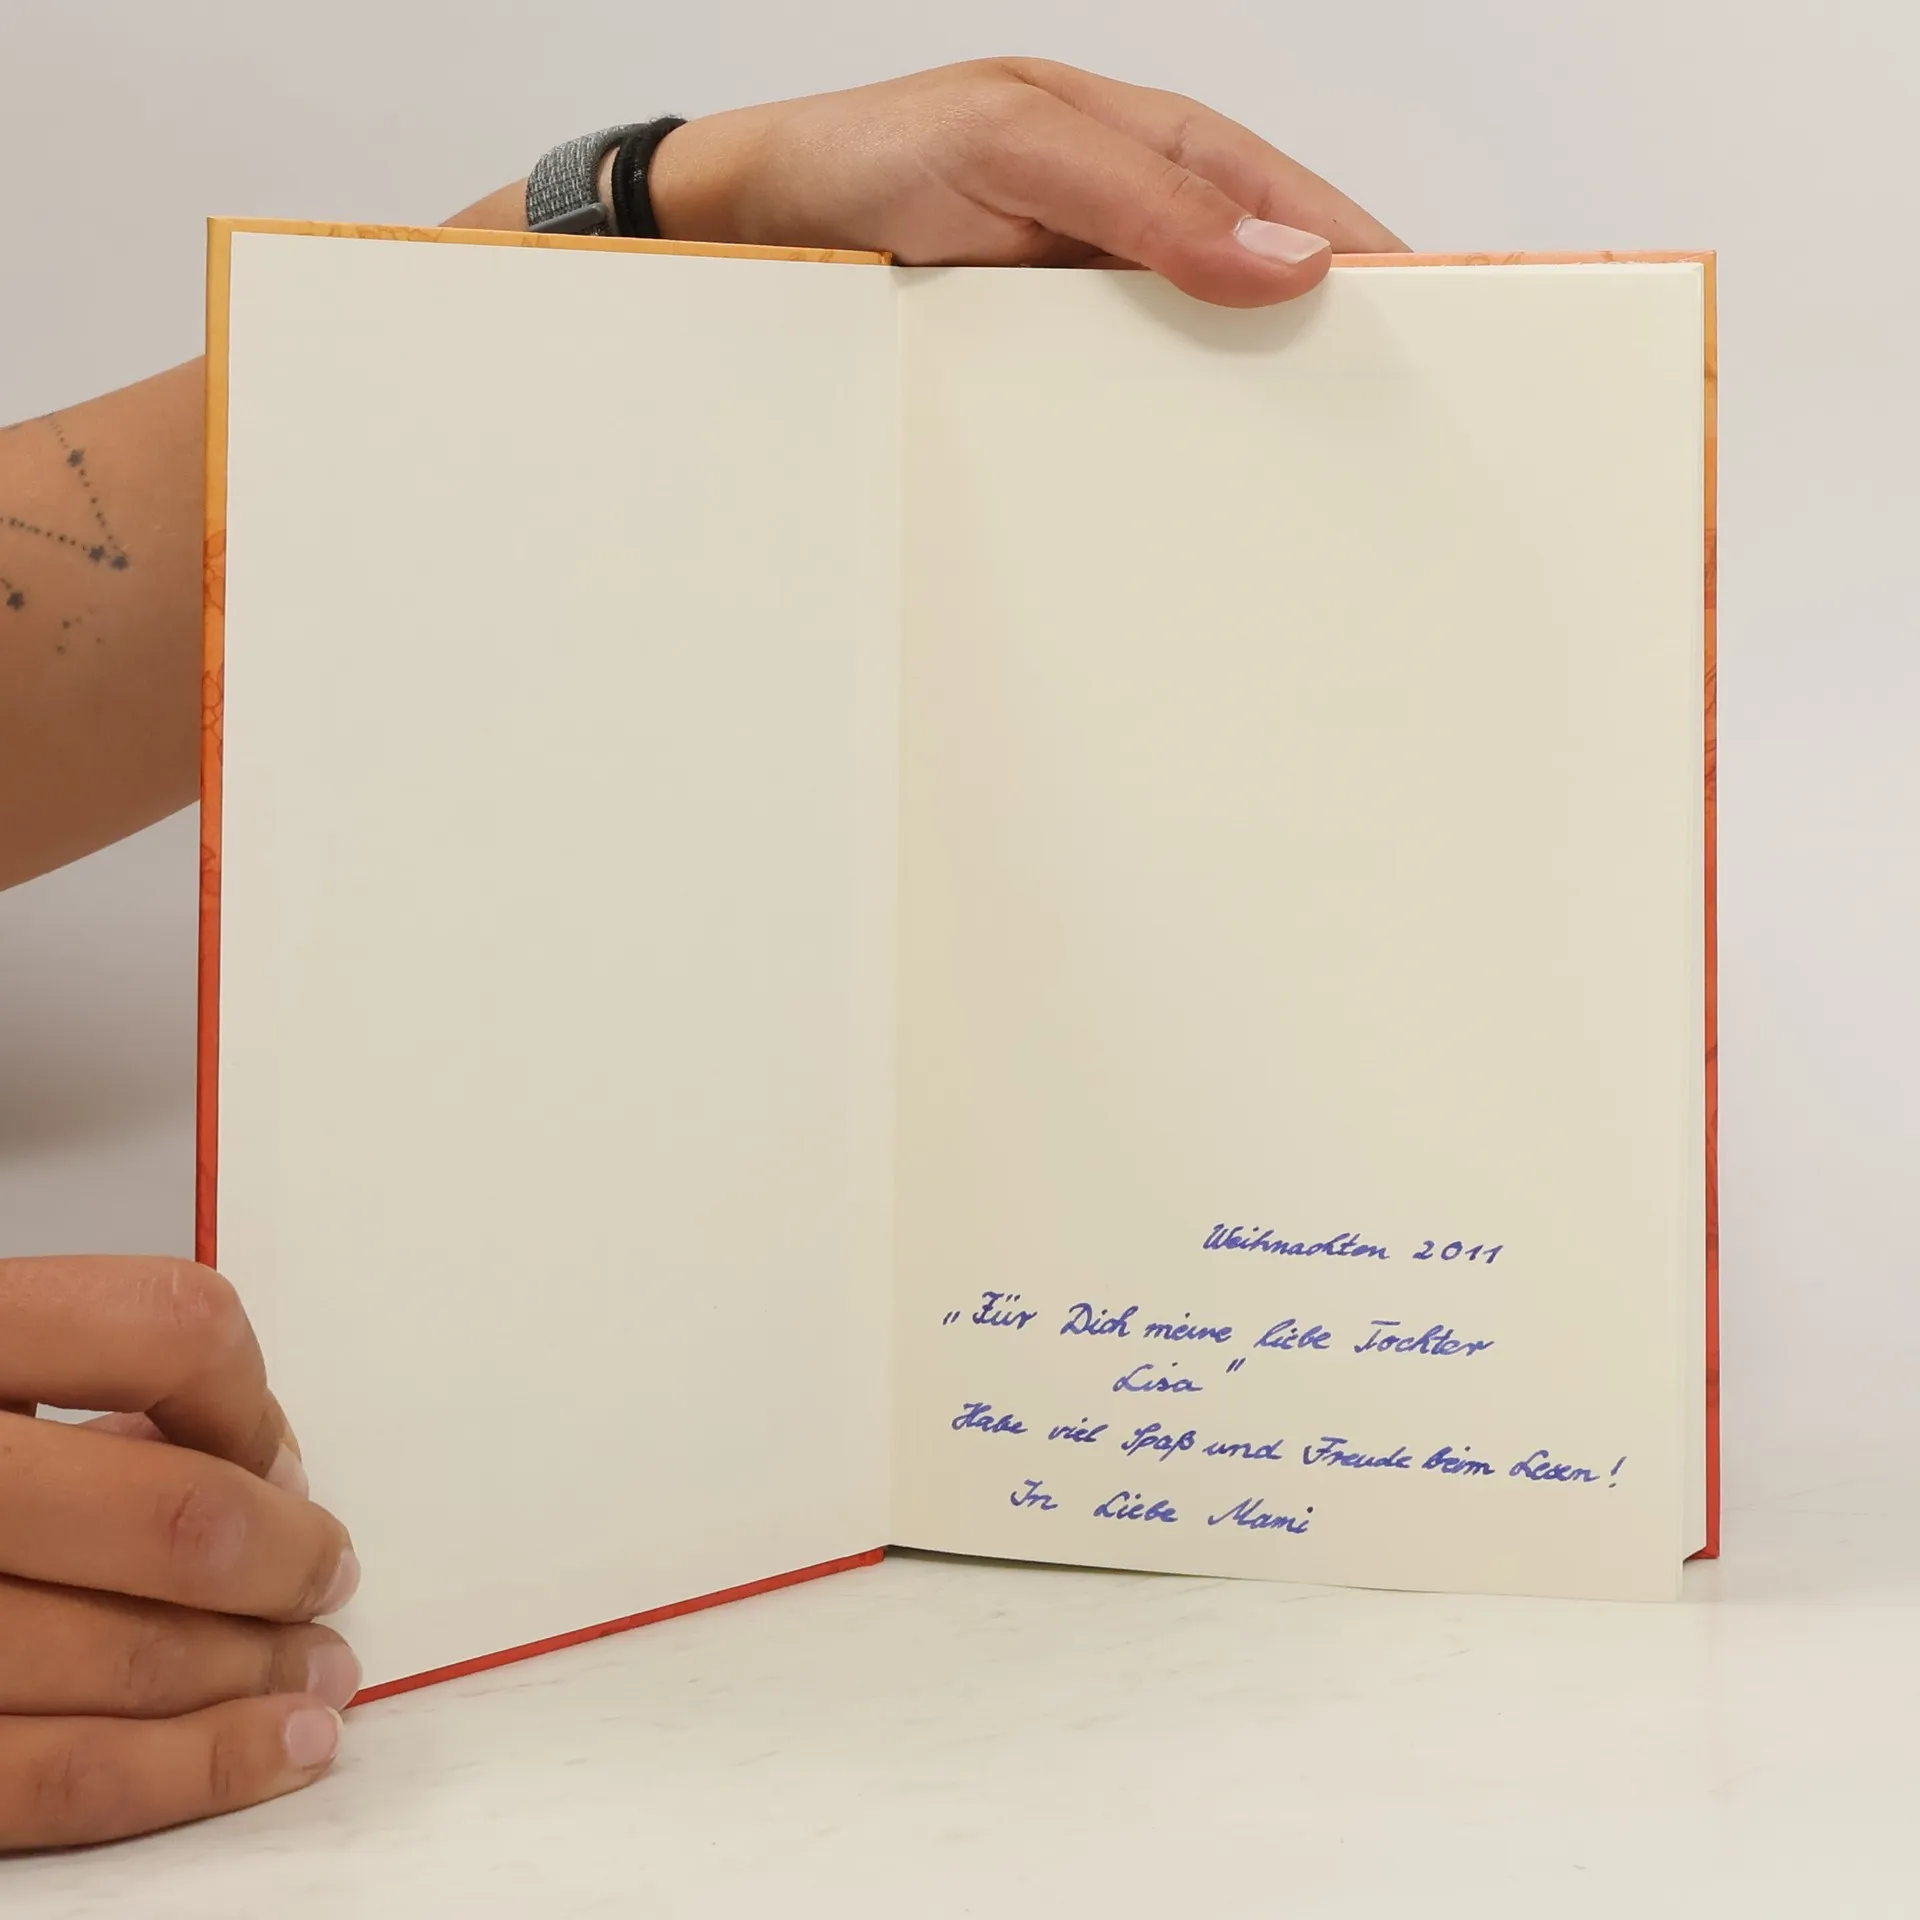 Weihnachten 2011
„Für Dich meine liebe Tochter
Lisa"
Habe viel Spaß und Freude beim Lesen!
In Liebe Mami